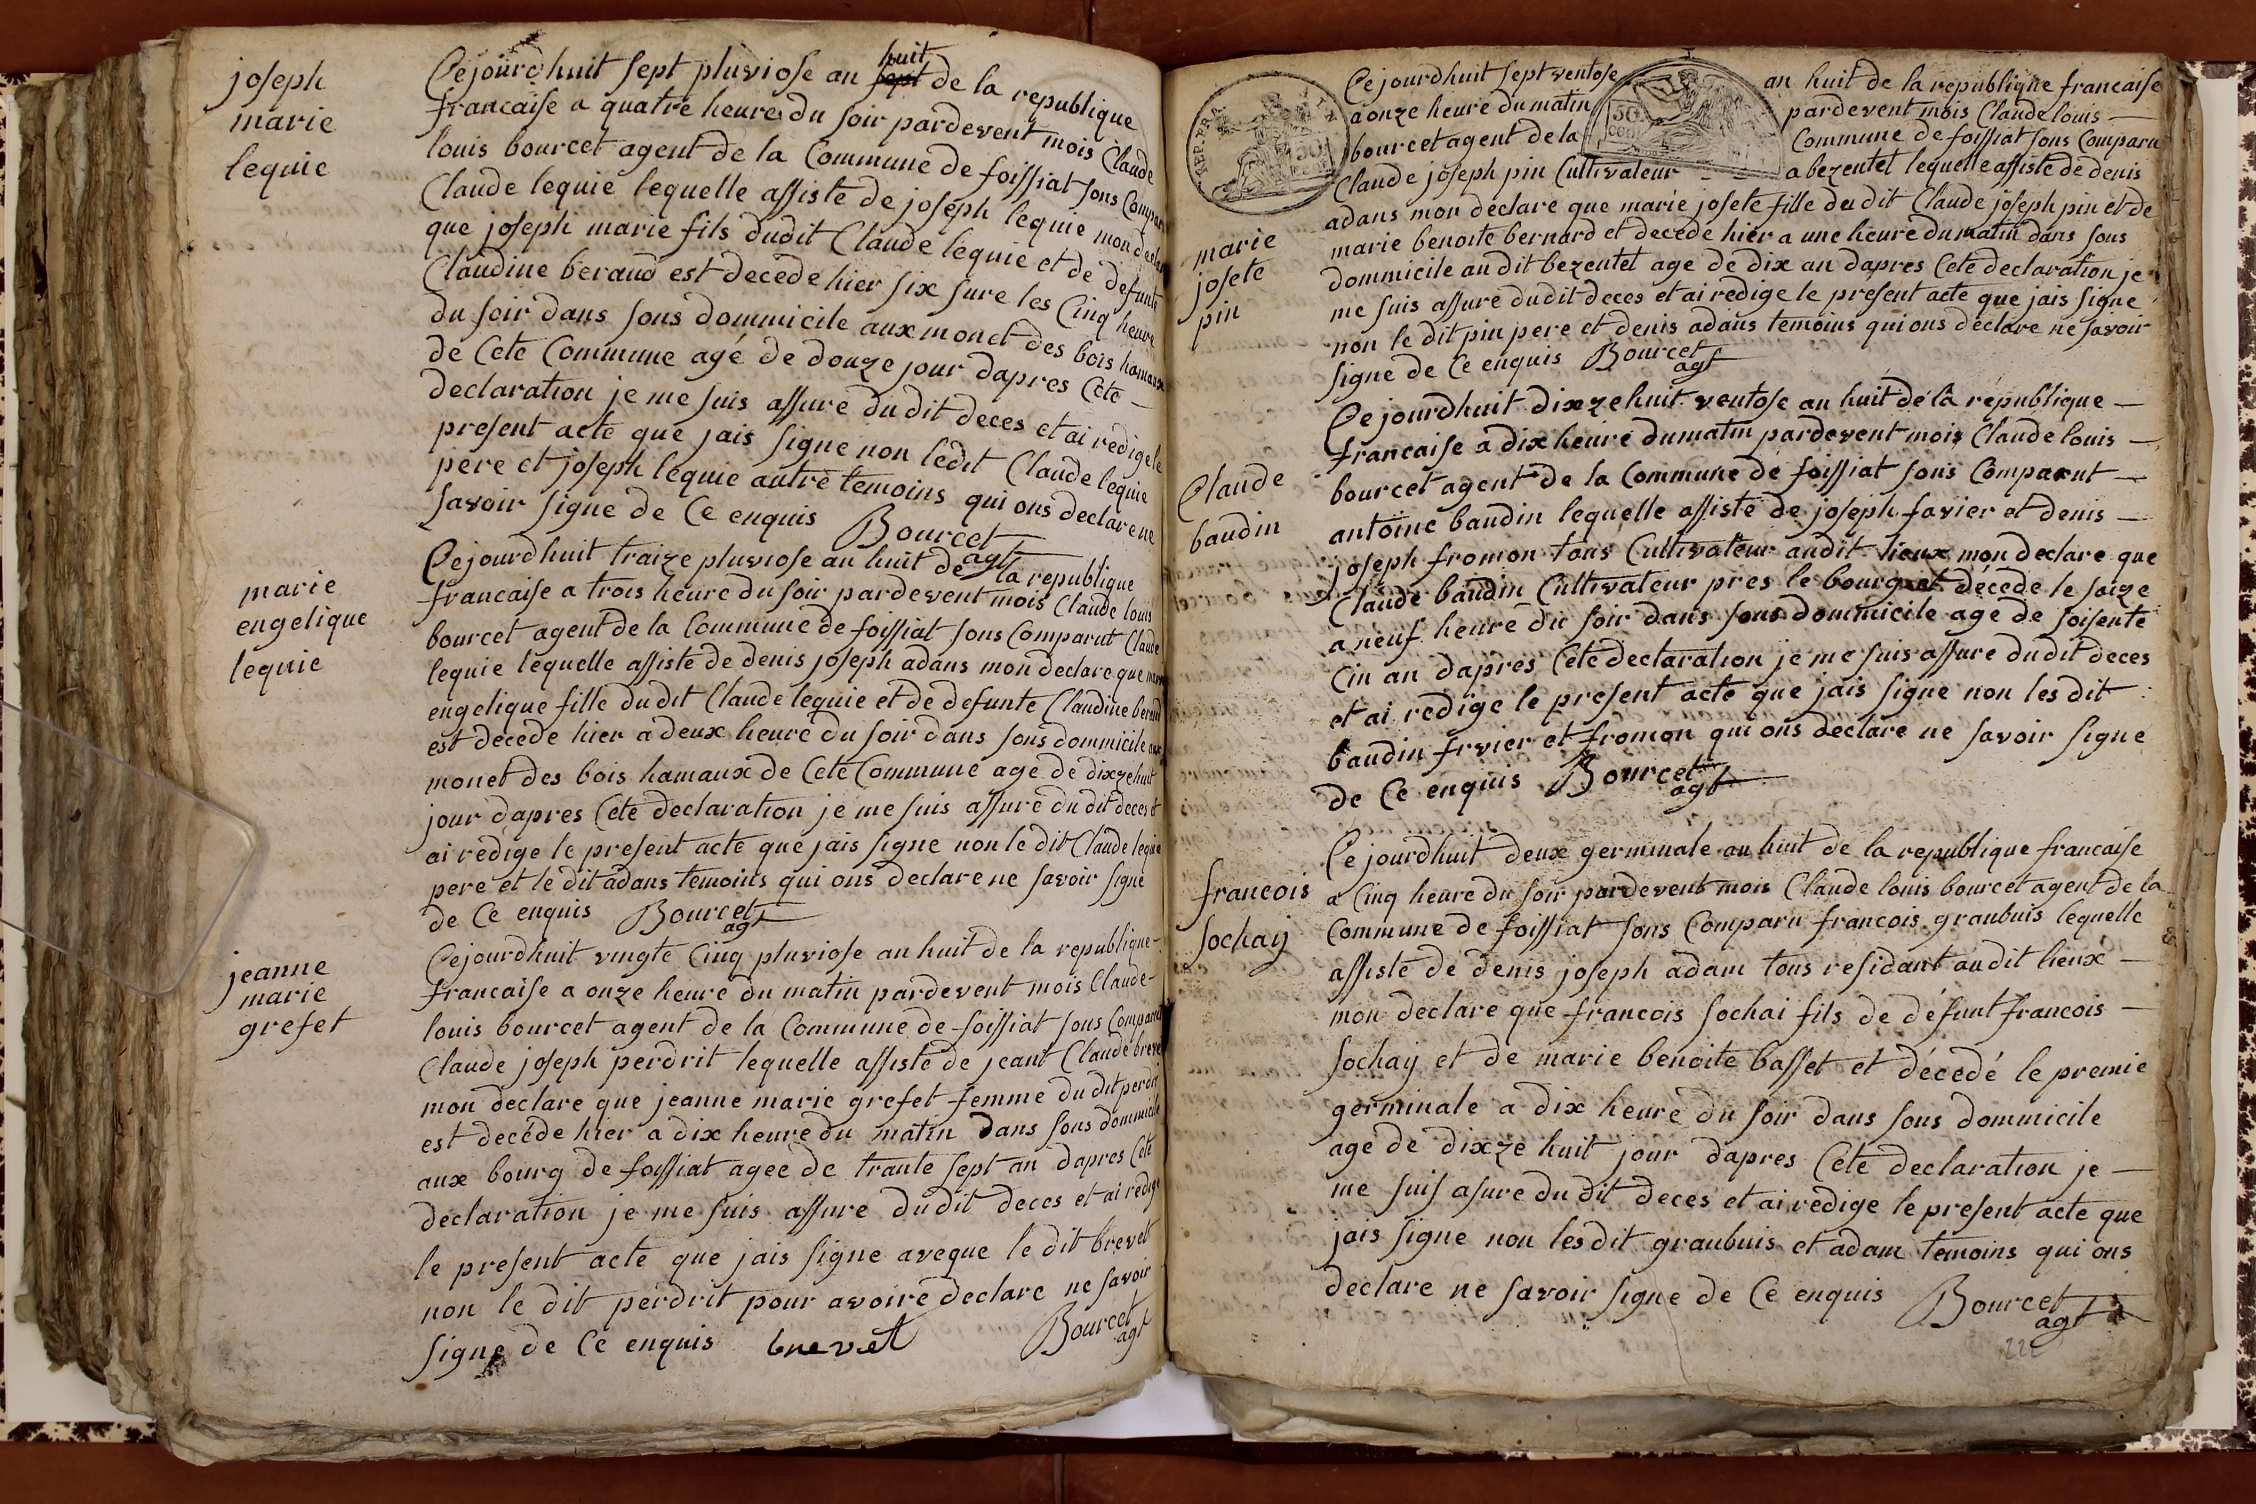 joseph
marie
lequie
Cejourdhuit sept pluviose an sept huit de la republique
francaise a quatre heure du soir pardevent mois Claude
louis bourcet agent de la Commune de foissiat sons Compar
Claude lequie lequelle assiste de joseph lequie mon declare
que joseph marie fils dudit Claude lequie et de defunte
Claudine beraud est decede hier six sure les Cinq heure
du soir dans sons dommicile aux monet des bois hamaux
de Cete Commune agé de douze jour dapres Cete
declaration je me suis assure du dit deces et ai redige le
present acte que jais signe non ledit Claude lequie
pere et joseph lequie autre temoins qui ons declare ne
savoir signe de Ce enquis Bourcet
agt
marie
engelique
lequie
Cejourdhuit traize pluviose an huit de la republique
francaise a trois heure du soir pardevent mois Claude louis
bourcet agent de la Commune de foissiat sons Comparut Claude
lequie lequelle assiste de denis joseph adans mon declare que marie
engelique fille du dit Claude lequie et de defunte Claudine beraud
est decede hier a deux heure du soir dans sons dommicile aux
monet des bois hamaux de Cete Commune age de dixzehuit
jour dapres Cete declaration je me suis assure du dit deces et
ai redige le present acte que jais signe non le dit Claude lequie
pere et le dit adans temoins qui ons declare ne savoir signe
de Ce enquis Bourcet
agt
jeanne
marie
grefet
Cejourdhuit vingte Cinq pluviose an huit de la republique
francaise a onze heure du matin pardevent mois Claude
louis bourcet agent de la Commune de foissiat sons Comparut
Claude joseph perdrit lequelle assiste de jeant Claude brevet
mon declare que jeanne marie grefet femme du dit perdrit
est decéde hier a dix heure du matin dans sons dommicile
aux bourg de foissiat agee de trante sept an dapres Cete
declaration je me suis assure du dit deces et ai redige
le present acte que jais signe aveque le dit brevet
non le dit perdrit pour avoire declare ne savoir
signe de Ce enquis brevet Bourcet
agt
REP. FRA
50
cent
Cejourdhuit sept ventose an huit de la republique francaise
a onze heure du matin pardevent mois Claude louis
bourcet agent de la Commune de foissiat sons Comparu
Claude joseph pin Cultivateur a bezentet lequelle assiste de denis
adans mon declare que marie josete fille du dit Claude joseph pin et de
marie benoite bernard et decede hier a une heure du matin dans sons
dommicile au dit bezentet age de dix an dapres Cete declaration je
me suis assure du dit deces et ai redige le present acte que jais signe
non le dit pin pere et denis adans temoins qui ons declare ne savoir
signe de Ce enquis Bourcet
agt
marie
josete
pin
Claude
baudin
Cejourdhuit dixzehuit ventose an huit de la republique
francaise a dix heure du matin pardevent mois Claude louis
bourcet agent de la Commune de foissiat sons Comparut
antoine baudin lequelle assiste de joseph favier et denis
joseph fromon tous Cultivateur audit lieux mon declare que
Claude baudin Cultivateur pres le bourg et décede le saize
a neuf heure du soir dans sons dommicile agé de soisente
Cin an dapres Cete declaration je me suis assure du dit deces
et ai redige le present acte que jais signe non les dit
baudin frvier et fromon qui ons declare ne savoir signe
de Ce enquis Bourcet
agt
francois
sochaij
Cejourdhuit deux germinale an huit de la republique francaise
a Cinq heure du soir pardevent mois Claude louis bourcet agent de la
Commune de foissiat sons Comparu francois graubuis lequelle
assiste de denis joseph adam tous residant au dit lieux
mon declare que francois sochai fils de défunt francois
sochaij et de marie benoite basset et décedé le premie
germinale a dix heure du soir dans sons dommicile
age de dixze huit jour dapres Cete declaration je
me suis asure du dit deces et ai redige le present acte que
jais signe non les dit graubuis et adam temoins qui ons
declare ne savoir signe de Ce enquis Bourcet
agt
222